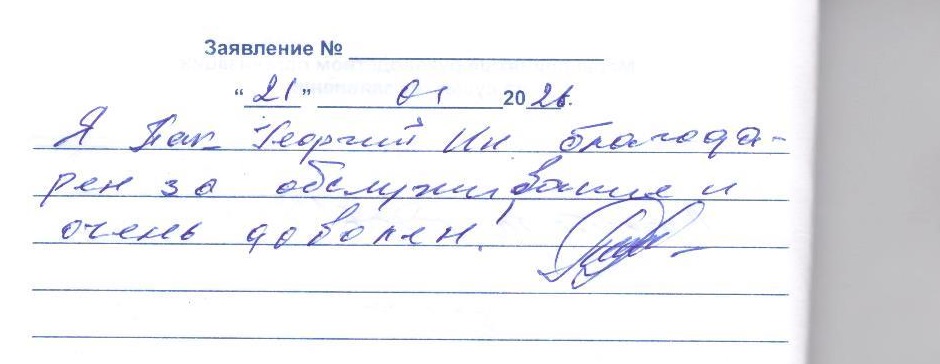 Заявление №
"21" 01 2026.
Я Пак Георгий Ин благода-
рен за обслуживание и
очень доволен!